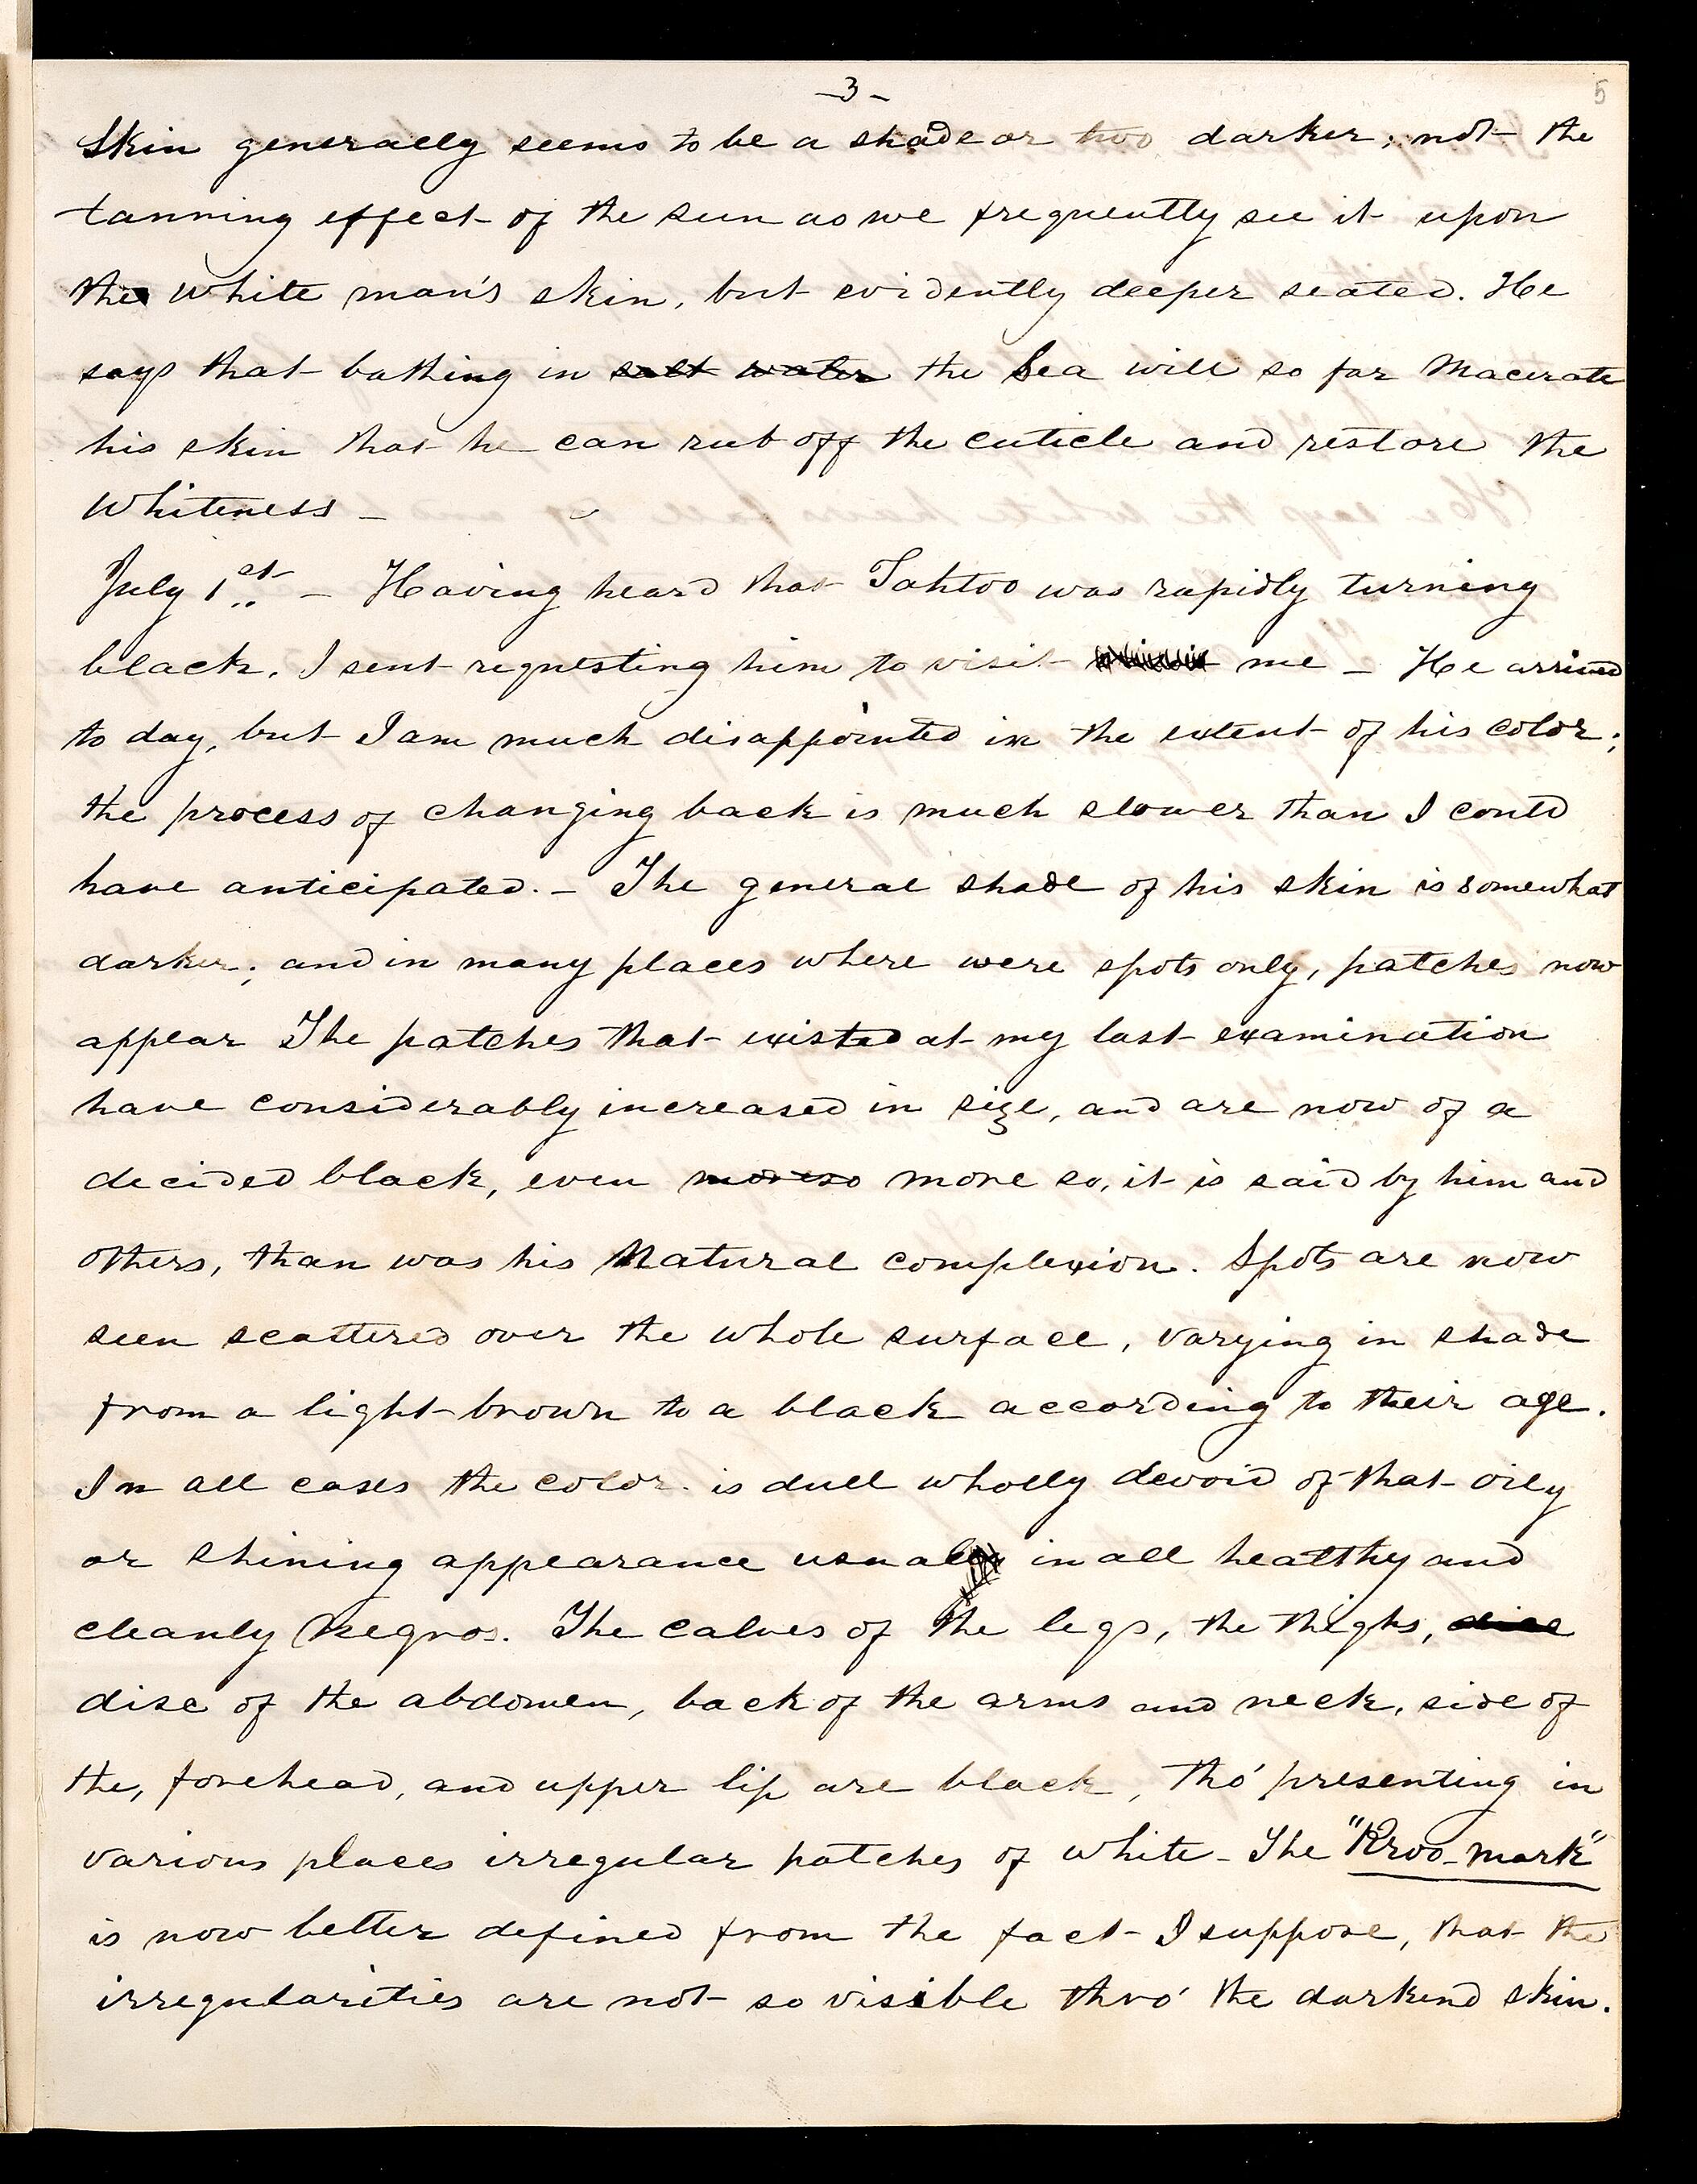 -3-
5
Skin generally seems to be a shade or two darker; not the
tanning effect of the sun as we frequently see it upon
the white man's skin, but evidently deeper seated. He
says that bathing in salt water the Sea will so far macerate
his skin that he can rub off the cuticle and restore the
whiteness -
July 1st - Having heard that Tahtoo was rapidly turning
black, I sent requesting him to visit me - He arrived
to day, but I am much disappointed in the extent of his color;
the process of changing back is much slower than I could
have anticipated. - The general shade of his skin is somewhat
darker; and in many places where were spots only, patches now
appear The patches that existed at my last examination
have considerably increased in size, and are now of a
decided black, even more so more so, it is said by him and
others, than was his Natural complexion. Spots are now
seen scattered over the whole surface, varying in shade
from a light brown to a black according to their age.
In all cases the color is dull wholly devoid of that oily
or shining appearance usual in all healthy and
cleanly Negros. The calves of the legs, the thighs, disc
disc of the abdomen, back of the arms and neck, side of
the, forehead, and upper lip are black, tho' presenting in
various places irregular patches of white - The "Kroo-mark"
is now better defined from the fact I suppose, that the
irregularities are not so visible thro' the darkend skin.